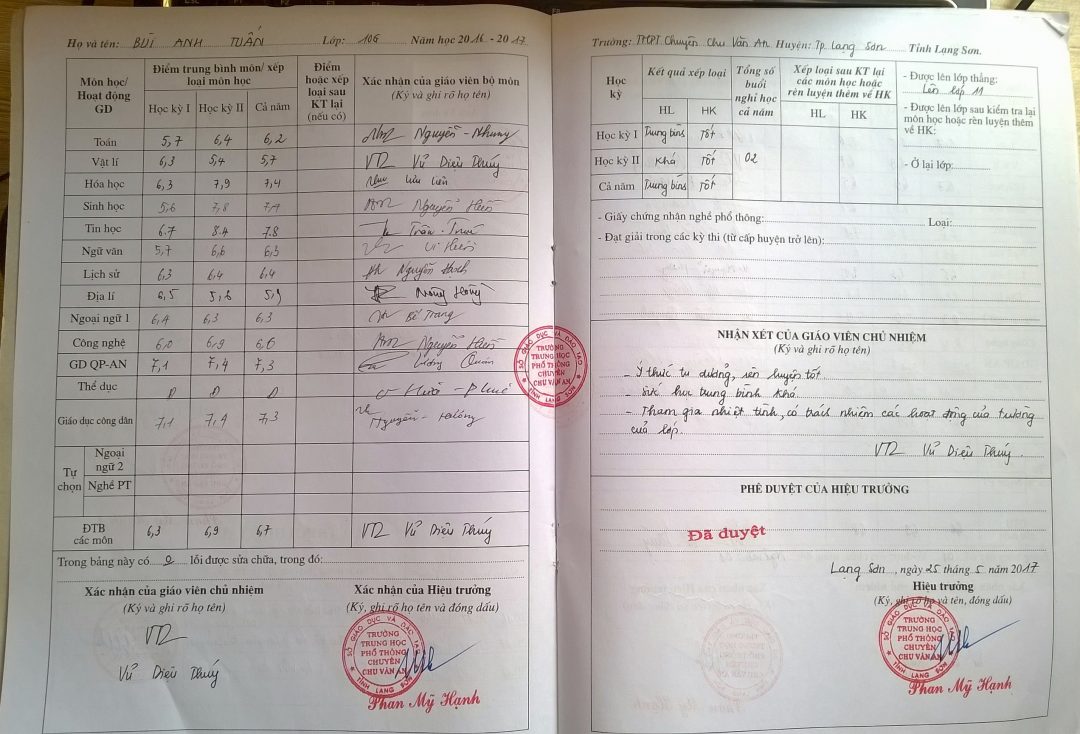 Họ và tên: BÙI ANH TUẤN Lớp: 10G Năm học 2016 - 2017
Môn học/ Hoạt động GD
Điểm trung bình môn/ xếp loại môn học
Học kỳ I Học kỳ II Cả năm
Điểm hoặc xếp loại sau KT lại (nếu có)
Xác nhận của giáo viên bộ môn
(Ký và ghi rõ họ tên)
Toán 5,7 6,4 6,2 Nguyễn - Nhung
Vật lí 6,3 5,4 5,7 Vũ Diệu Thúy
Hóa học 6,3 7,9 7,4
Sinh học 5,6 7,8 7,1 Nguyễn Hiền
Tin học 6.7 8.4 7.8 Trần
Ngữ văn 5,7 6,6 6,3 Vi
Lịch sử 6,3 6,4 6,4 Nguyễn
Địa lí 6,5 5,6 5,9 Nông Hồng
Ngoại ngữ 1 6,4 6,3 6,3 Bế Trang
Công nghệ 6,0 6,9 6,6 Nguyễn Hiền
GD QP-AN 7,1 7,4 7,3 Lương Quán
Thể dục Đ Đ Đ
Giáo dục công dân 7,1 7,4 7,3 Nguyễn -
Tự chọn
Ngoại ngữ 2
Nghề PT
ĐTB các môn 6,3 6,9 6,7 Vũ Diệu Thúy
Trong bảng này có 0 lỗi được sửa chữa, trong đó:
Xác nhận của giáo viên chủ nhiệm
(Ký và ghi rõ họ tên)
Vũ Diệu Thúy
Xác nhận của Hiệu trưởng
(Ký, ghi rõ họ tên và đóng dấu)
SỞ GIÁO DỤC VÀ ĐÀO TẠO
TRƯỜNG
TRUNG HỌC
PHỔ THÔNG
CHUYÊN
CHU VĂN AN
TỈNH LẠNG SƠN
Phan Mỹ Hạnh
SỞ GIÁO DỤC VÀ ĐÀO TẠO
TRƯỜNG
TRUNG HỌC
PHỔ THÔNG
CHUYÊN
CHU VĂN AN
TỈNH LẠNG SƠN
Trường: THPT Chuyên Chu Văn An Huyện: Tp. Lạng Sơn Tỉnh Lạng Sơn.
Học kỳ
Kết quả xếp loại
HL HK
Tổng số buổi nghỉ học cả năm
Xếp loại sau KT lại các môn học hoặc rèn luyện thêm về HK
HL HK
Học kỳ I Trung bình Tốt
Học kỳ II Khá Tốt 02
Cả năm Trung bình Tốt
- Được lên lớp thẳng:
Lên lớp 11
- Được lên lớp sau kiểm tra lại
môn học hoặc rèn luyện thêm
về HK:
- Ở lại lớp:
- Giấy chứng nhận nghề phổ thông: Loại:
- Đạt giải trong các kỳ thi (từ cấp huyện trở lên):
NHẬN XÉT CỦA GIÁO VIÊN CHỦ NHIỆM
(Ký và ghi rõ họ tên)
- Ý thức tu dưỡng, rèn luyện tốt
- Sức học trung bình khá.
- Tham gia nhiệt tình, có trách nhiệm các hoạt động của trường
của lớp.
Vũ Diệu Thúy.
PHÊ DUYỆT CỦA HIỆU TRƯỞNG
Đã duyệt
Lạng Sơn, ngày 25 tháng 5 năm 2017
Hiệu trưởng
(Ký, ghi rõ họ và tên, đóng dấu)
SỞ GIÁO DỤC VÀ ĐÀO TẠO
TRƯỜNG
TRUNG HỌC
PHỔ THÔNG
CHUYÊN
CHU VĂN AN
TỈNH LẠNG SƠN
Phan Mỹ Hạnh